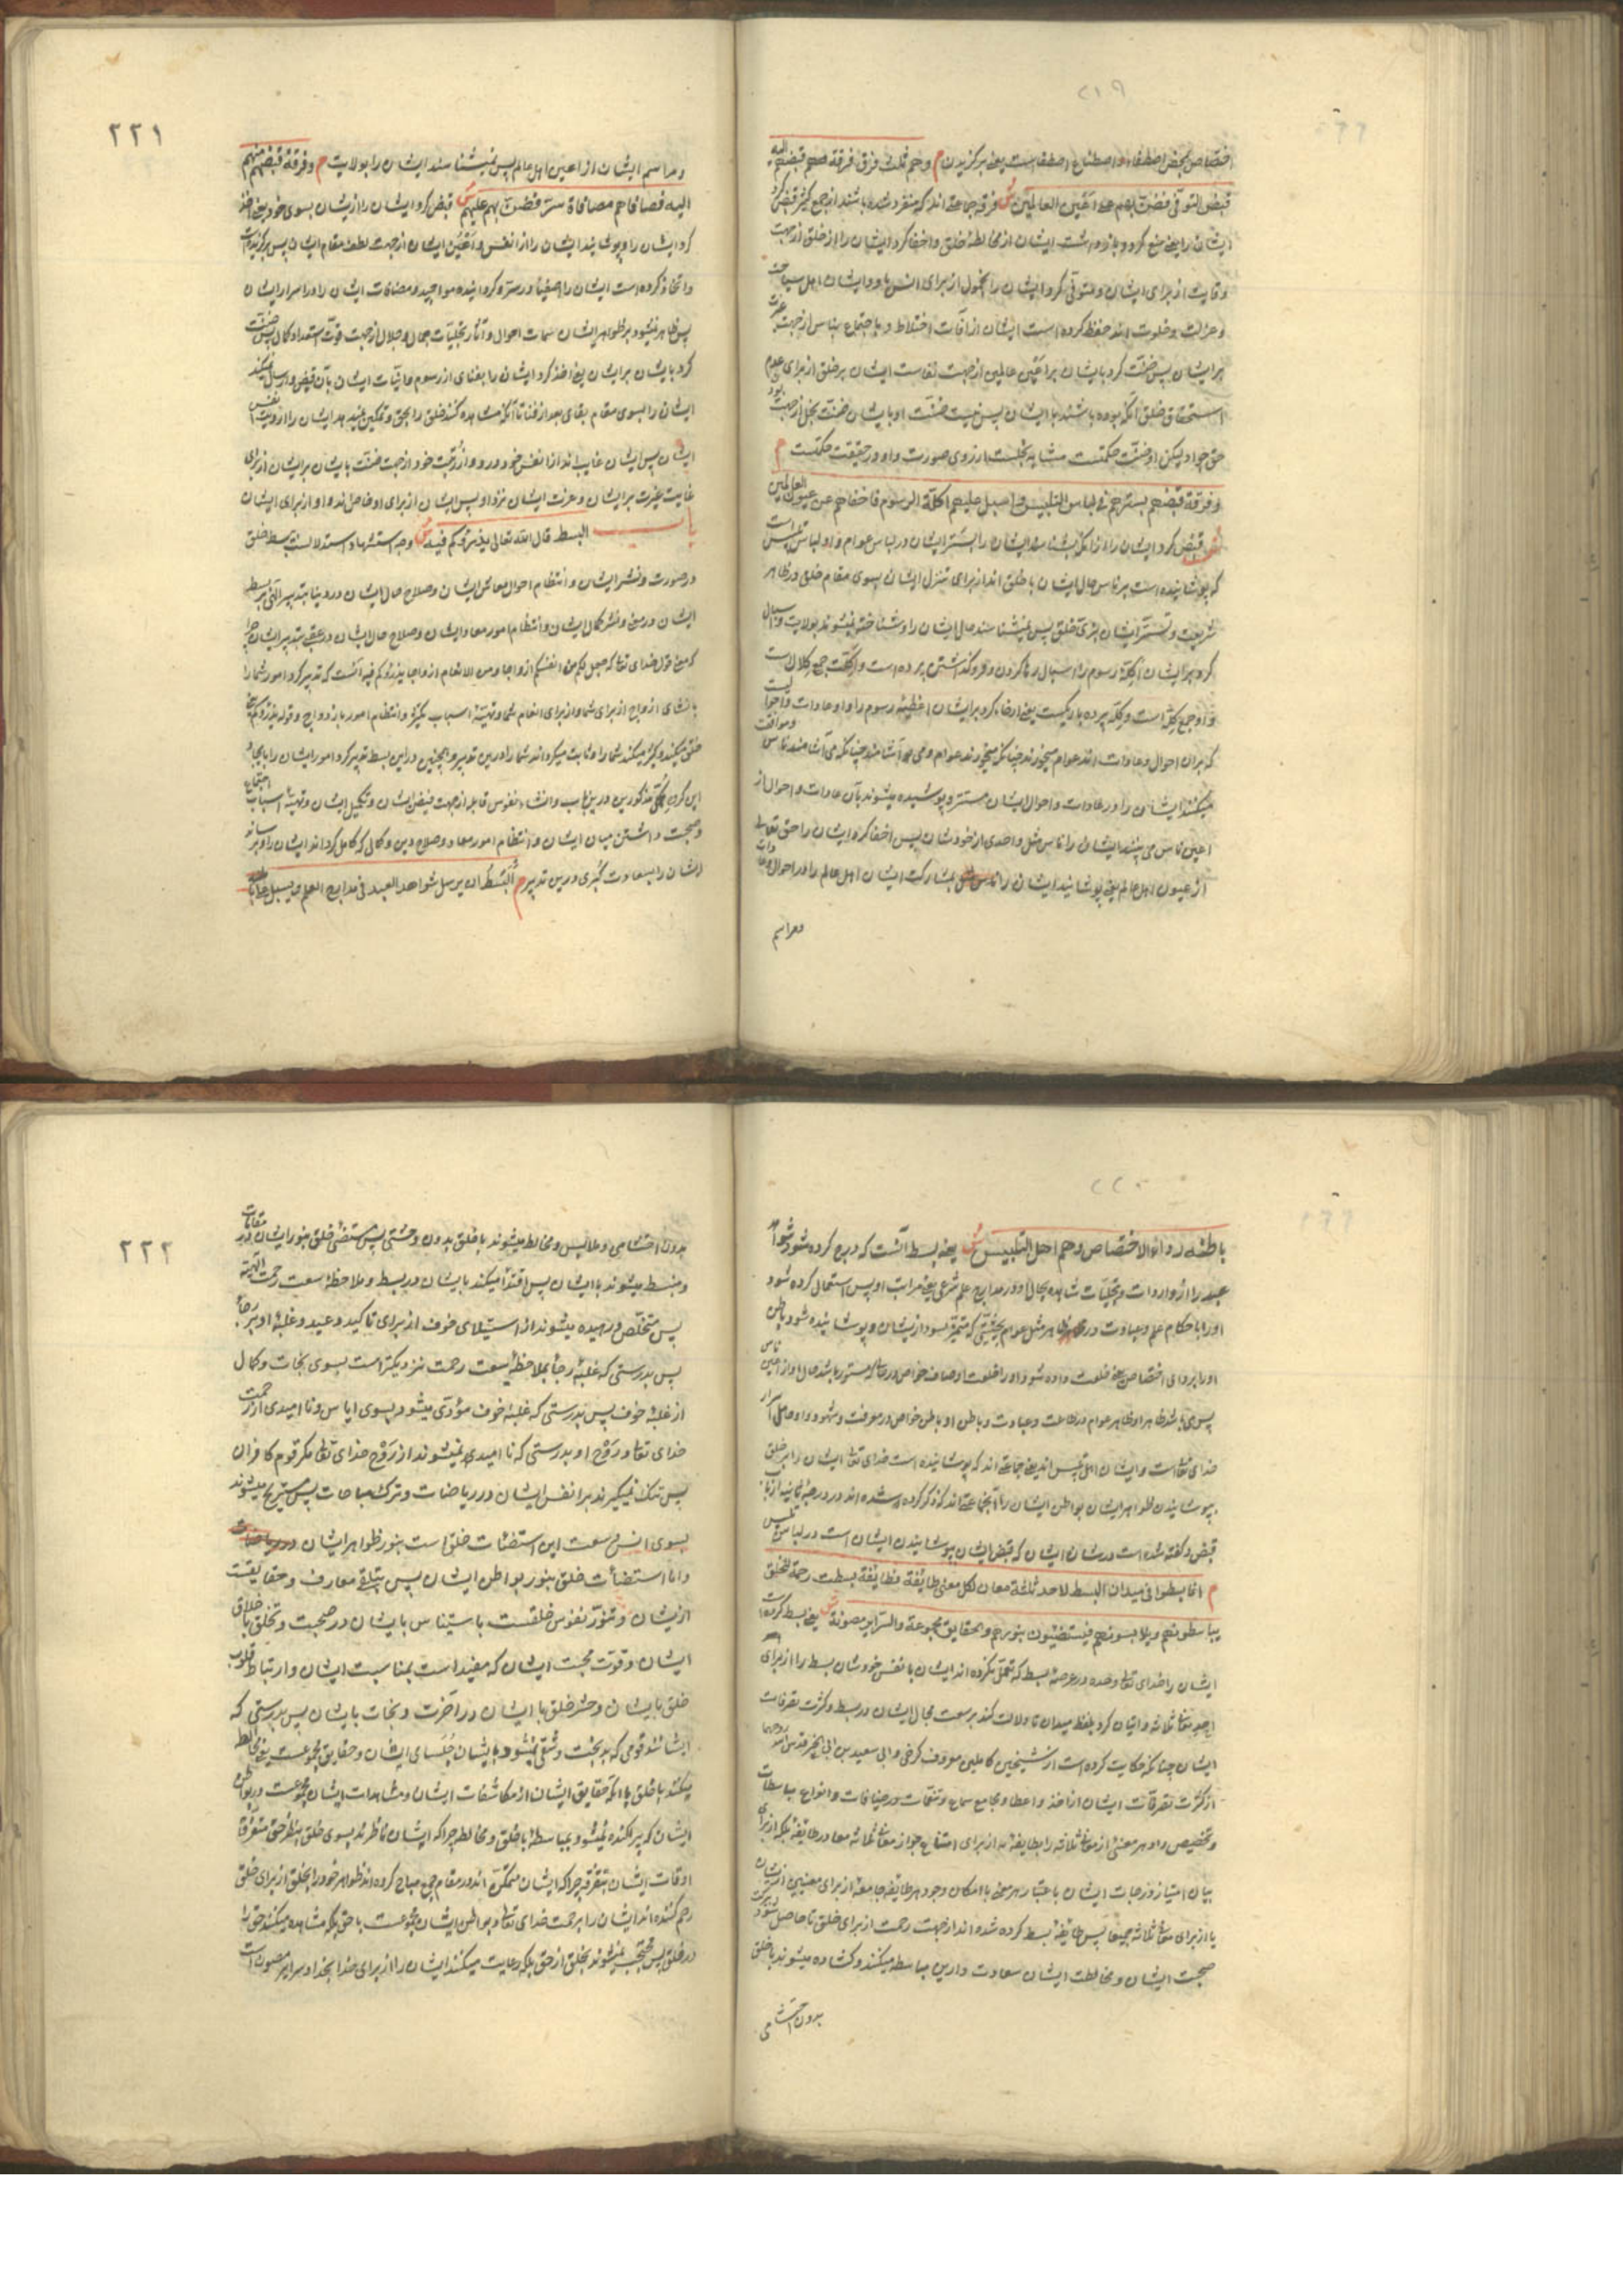 ۲۱۹
اختصاص محض اصطفاء و اصطناع اصطفاست یعنی برگزیدن م و هم ثلث فرق فرقة قبضهم الیه
قبض التوقی فضن بهم عن اعین العالمین ش فرقه جماعة اند که منفرد شده باشند از جمع کثیر قبض کرد
ایشان را یعنی منع کرد و بازداشت ایشان از مخالطهٔ خلق و اخفا کرد ایشان را از خلق از جهت
وقایت از برای ایشان و متوقی کرد ایشان را بخمول از برای انس باو و ایشان اهل سیاحت
و عزلت و خلوت اند حفظ کرده است ایشان از آفات اختلاط و با اجتماع بناس از جهت عزت
بر ایشان پس ضنّت کرد بایشان بر اعین عالمین از جهت نفاست ایشان بر خلق از برای عدم
استحقاق خلق آنکه بوده باشند با ایشان پس نیست ضنّت او بایشان ضنّت بخل از جهت بود
حق جواد و لیکن او ضنّت حکمتست مشابه بخلست از روی صورت و او در حقیقت حکمتست م
و فرقة قبضهم بسترهم فی لباس التلبیس و اسبل علیهم اکلّة الرسوم فاخفاهم عن عیون العالمین
ش قبض کرد ایشان را از آنکه بشناسند ایشان را بستر ایشان در لباس عوام و او لباس تلبیس است
که پوشانیده است بر ناس حال ایشان با خلق اند از برای تنزل ایشان بسوی مقام خلق در ظاهر
شریعت و تستر ایشان بزیّ خلق پس نمیشناسند حال ایشان را و شناخته نمیشوند بولایت و اسبال
کرد بر ایشان اکلّهٔ رسوم را اسبال رها کردن و فرو گذاشتن پرده است و اکلّت جمع کلال است
و او جمع کلّه است و کلّه پرده باریکیست یعنی ارخاء کرد بر ایشان اغطیهٔ رسوم را و او عادات و احوالیست
که بران احوال و عادات اند عوام میخورند چنانکه میخورند عوام و می آشامند چنانکه می آشامند ناس و موافقت
میکنند ایشان را در عادات و احوال ایشان مستتر و پوشیده میشوند بآن عادات و احوال از
اعین ناس می بینند ایشان را ناس مثل واحدی از خودشان پس اخفا کرد ایشان را حق تعالی
از عیون اهل عالم یعنی پوشانید ایشان را بمشارکت ایشان اهل عالم را در احوال و عادات
و مراسم
۲۲۱
و مراسم ایشان از اعین اهل عالم پس نمیشناسند ایشان را بولایت م و فرقة قبضهم منهم
الیه فصافاهم مصافاة سرّ فضنّ بهم علیهم ش قبض کرد ایشان را از ایشان بسوی خود یعنی اخذ
کرد ایشان را و پوشانید ایشان را از انفس و اعین ایشان از جهت لطف مقام ایشان پس برگزیده است
و اتخاذ کرده است ایشان را اصفیا در سرّ و گردانیده مواجید و مصافات ایشان را در اسرار ایشان
پس ظاهر نمیشود بر ظواهر ایشان سمات احوال و آثار تجلیات جمال و جلال از جهت قوّت استعداد و کمال پس ضنّت
کرد بایشان بر ایشان یعنی اخذ کرد ایشان را بفنای از رسوم و انیّات ایشان بآن قبض و ارسال نمیکند
ایشان را بسوی مقام بقای بعد از فنا تا آنکه مشاهده کنند خلق را بحق و تمکین نمیدهد ایشان را از رؤیت انفس
ایشان پس ایشان غایب اند از انفس خود در و و از رؤیت خود از جهت ضنّت بایشان بر ایشان از برای
غایت غیرت بر ایشان و عزت ایشان نزد او پس ایشان از برای او خاص اند و او از برای ایشان
باب البسط قال الله تعالی یذرؤکم فیه ش وجه استشهاد و استدلالست ببسط خلق
در صورت و نشر ایشان و انتظام احوال معاش ایشان و صلاح حال ایشان در دنیا بتدبیر آلهی بر بسط
ایشان در معنی و نشر کمال ایشان و انتظام امور معاد ایشان و صلاح حال ایشان در عقبی بتدبیر ایشان چرا
که معنی قول خدای تعالی که جعل لکم من انفسکم ازواجا و من الانعام ازواجا یذرؤکم فیه آنست که تدبیر کرد امور شما را
بانشای ازواج از برای شما و از برای انعام شما و تهیّهٔ اسباب تکثیر و انتظام امور بازدواج و قوله یذرؤکم یعنی
خلق میکند و تکثیر میکند شما را و ثابت میگرداند شما را درین تدبیر و همچنین درین بسط تدبیر کرد امور ایشان را بایجاد
این گروه مذکورین درین باب و انشاء نفوس قابله از جهت فیض ایشان و تکمیل ایشان و تهیّهٔ اسباب اجتماع
و صحبت داشتن میان ایشان و انتظام امور معاد و صلاح دین و کمالی که کامل گرداند ایشان را و برساند
ایشان را بسعادت کبری درین تدبیر م البسط ان یرسل شواهد العبد فی مدارج العلم و یسبل علی
۲۲۰
باطنه رداء الاختصاص و هم اهل التلبیس ش یعنی بسط آنست که درج کرده شود شواهد
عبد را از واردات و تجلیات شاهده بحال او در مدارج علم شرعی یعنی مراتب او پس استعمال کرده شود
او را باحکام علم و عبادت در ظاهر مثل عوام بحیثیتی که متمیز نبود از ایشان و پوشانیده شود باطن
او را بردای اختصاص یعنی خلعت داده شود او را خلعت اوصاف خواص در حالتی که مستور باشد حال او از اعین ناس
پس می باشد ظاهر او ظاهر عوام در طاعت و عبادت و باطن او باطن خواص در معرفت و شهود و او حامل اسرار
خدای تعالی است و ایشان اهل تلبیس اند یعنی جماعتی اند که پوشانیده است خدای تعالی ایشان را بر خلق
بپوشانیدن ظواهر ایشان بواطن ایشان را آنجماعتند که ذکر کرده شده اند در درجهٔ ثانیه از باب
قبض و گفته شده است در شان ایشان که قبض ایشان پوشانیدن ایشان است در لباس تلبیس
م انما بسطوا فی میدان البسط لاحد ثلاثة معان لکل معنی طائفة فطائفة بسطت رحمة للخلق
یباسطونهم و یلابسونهم فیستضیئون بنورهم و الحقایق مجموعة و السرایر مصونة ش یعنی بسط کرده است
ایشان را خدای تعالی وحده در عرصهٔ بسط که تعمّل نکرده اند ایشان با نفس خودشان بسط را از برای
احد معانی ثلاثه و اتیان کرد بلفظ میدان تا دلالت کند بر سعت مجال ایشان در بسط و کثرت تصرفات
ایشان چنانکه حکایت کرده است از شیخین کاملین معروف کرخی و ابی سعید بن ابی الخیر قدس الله روحهما
از کثرت تصرفات ایشان از اخذ و اعطا و مجامع سماع و تنعّمات و ضیافات و انواع مباسطات
و تخصیص داد هر معنی از معانی ثلاثه را بطایفهٔ نه از برای امتناع جواز معانی ثلاثه معا در طایفهٔ بلکه از برای
بیان امتیاز درجات ایشان باعتبار هر معنی با امکان وجود هر طایفه جامعه از برای معنیین از ایشان
یا از برای معانی ثلاثه جمیعا پس طایفهٔ بسط کرده شده اند از جهت رحمت از برای خلق تا حاصل شود ببرکت
صحبت ایشان و مخالطت ایشان سعادت دارین مباسطه میکنند و کشاده میشوند با خلق
بدون احتشامی
۲۲۲
بدون احتشامی و ملابس و مخالط میشوند با خلق بدون وحشتی پس مستضئ خلق بنور ایشان در مقامات
و منبسط میشوند با ایشان پس اقتدا میکنند بایشان در بسط و ملاحظهٔ سعت رحمت آلهیّه
پس متخلّص و رهیده میشوند از استیلای خوف از برای تاکید وعید و غلبهٔ او بر رجا
پس بدرستی که غلبهٔ رجا بملاحظهٔ سعت رحمت نزدیکتر است بسوی نجات و کمال
از غلبهٔ خوف پس بدرستی که غلبهٔ خوف مؤدی میشود بسوی ایاس و نا امیدی از رحمت
خدای تعالی و روح او بدرستی که نا امیدی نمیشوند از روح خدای تعالی مگر قوم کافران
پس تنگ نمیگیرند بر انفس ایشان در ریاضات و ترک مباحات پس مستریح میشوند
بسوی انس و سعت این استضئات خلق است بنور ظواهر ایشان
و اما استضئات خلق بنور بواطن ایشان پس بتلقی معارف و حقایقست
از ایشان و تنوّر نفوس خلقست باستیناس بایشان در صحبت و تخلّق باخلاق
ایشان و قوّت محبت ایشان که مفید است بمناسبت ایشان و ارتباط قلوب
خلق بایشان و حشر خلق با ایشان در آخرت و نجات بایشان پس بدرستی که
ایشانند قومی که بدبخت و شقی نمیشود بایشان جلسای ایشان و حقایق مجموعست یعنی مخالطه
میکنند با خلق با آنکه حقایق ایشان از مکاشفات ایشان و مشاهدات ایشان مجموعست در بواطن
ایشان که پراکنده نمیشود بمباسطهٔ با خلق و مخالطه چرا که ایشان ناظرند بسوی خلق بنظر حق متفرق
اوقات ایشان بتفرقه چرا که ایشان متمکن اند در مقام جمع مباح کرده اند ظواهر خود را بخلق از برای خلق
رحم کننده اند ایشان را برحمت خدای تعالی و بواطن ایشان مجموعست با حق بلکه مشاهده میکنند حق را
در خلق پس محتجب نمیشوند بخلق از حق بلکه رعایت میکنند ایشان را از برای خدا بخدا و سرایر مصون است